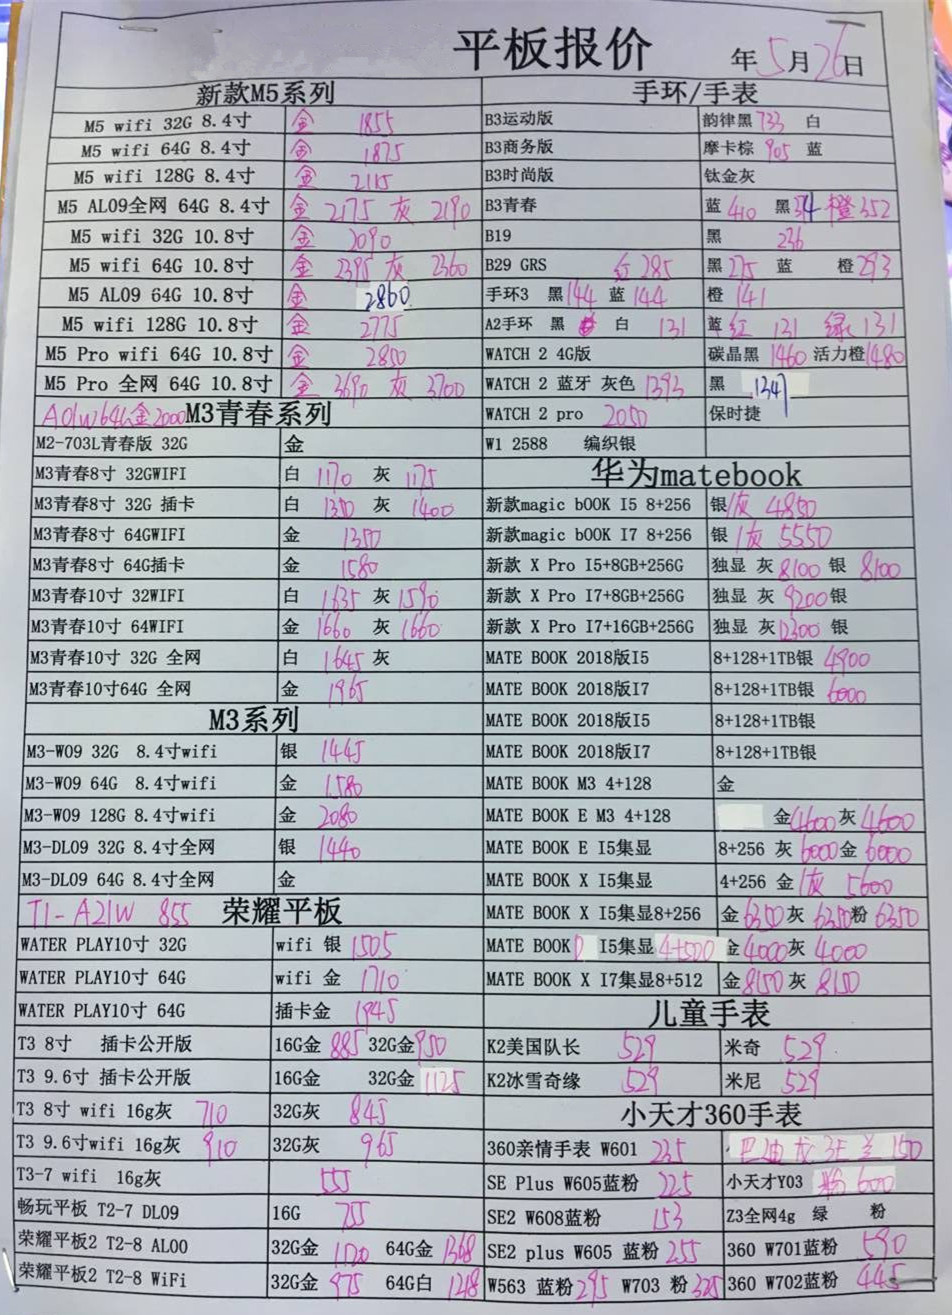 平板报价 年5月26日
新款M5系列
M5 wifi 32G 8.4寸 金 1855
M5 wifi 64G 8.4寸 金 1875
M5 wifi 128G 8.4寸 金 2115
M5 AL09全网 64G 8.4寸 金 2175 灰 2190
M5 wifi 32G 10.8寸 金 2090
M5 wifi 64G 10.8寸 金 2395 灰 2360
M5 AL09 64G 10.8寸 金 2860
M5 wifi 128G 10.8寸 金 2775
M5 Pro wifi 64G 10.8寸 金 2850
M5 Pro 全网 64G 10.8寸 金 3690 灰 3700
A01W64G金2000 M3青春系列
M2-703L青春版 32G 金
M3青春8寸 32GWIFI 白 1170 灰 1175
M3青春8寸 32G 插卡 白 1350 灰 1400
M3青春8寸 64GWIFI 金 1350
M3青春8寸 64G插卡 金 1580
M3青春10寸 32WIFI 白 1635 灰 1590
M3青春10寸 64WIFI 金 1660 灰 1660
M3青春10寸 32G 全网 白 1645 灰
M3青春10寸64G 全网 金 1965
M3系列
M3-W09 32G 8.4寸wifi 银 1445
M3-W09 64G 8.4寸wifi 金 1580
M3-W09 128G 8.4寸wifi 金 2080
M3-DL09 32G 8.4寸全网 银 1440
M3-DL09 64G 8.4寸全网 金
T1-A21W 855 荣耀平板
WATER PLAY10寸 32G wifi 银 1505
WATER PLAY10寸 64G wifi 金 1710
WATER PLAY10寸 64G 插卡金 1945
T3 8寸 插卡公开版 16G金 885 32G金 950
T3 9.6寸 插卡公开版 16G金 32G金 1125
T3 8寸 wifi 16g灰 710 32G灰 845
T3 9.6寸wifi 16g灰 910 32G灰 965
T3-7 wifi 16g灰 555
畅玩平板 T2-7 DL09 16G 755
荣耀平板2 T2-8 AL00 32G金 1120 64G金 1368
荣耀平板2 T2-8 WiFi 32G金 975 64G白 1218
手环/手表
B3运动版 韵律黑 733 白
B3商务版 摩卡棕 905 蓝
B3时尚版 钛金灰
B3青春 蓝 410 黑 橙 352
B19 黑 236
B29 GRS 红 285 黑 275 蓝 橙 293
手环3 黑 144 蓝 144 橙 141
A2手环 黑 白 131 蓝 红 131 绿 131
WATCH 2 4G版 碳晶黑 1460 活力橙 1480
WATCH 2 蓝牙 灰色 1393 黑 1347
WATCH 2 pro 2050 保时捷
W1 2588 编织银
华为matebook
新款magic bOOK I5 8+256 银/灰 4850
新款magic bOOK I7 8+256 银/灰 5550
新款 X Pro I5+8GB+256G 独显 灰 8100 银 8100
新款 X Pro I7+8GB+256G 独显 灰 9200 银
新款 X Pro I7+16GB+256G 独显 灰 12300 银
MATE BOOK 2018版I5 8+128+1TB银 4900
MATE BOOK 2018版I7 8+128+1TB银 6000
MATE BOOK 2018版I5 8+128+1TB银
MATE BOOK 2018版I7 8+128+1TB银
MATE BOOK M3 4+128 金
MATE BOOK E M3 4+128 金 4600 灰 4600
MATE BOOK E I5集显 8+256 灰 6000 金 6000
MATE BOOK X I5集显 4+256 金/灰 5600
MATE BOOK X I5集显8+256 金 6350 灰 6350 粉 6350
MATE BOOK D I5集显 4+500 金 4000 灰 4000
MATE BOOK X I7集显8+512 金 8150 灰 8150
儿童手表
K2美国队长 529 米奇 529
K2冰雪奇缘 529 米尼 529
小天才360手表
360亲情手表 W601 235 巴迪龙 3E 兰 150
SE Plus W605蓝粉 225 小天才Y03 粉 600
SE2 W608蓝粉 153 Z3全网4g 绿 粉
SE2 plus W605 蓝粉 255 360 W701蓝粉 590
W563 蓝粉 295 W703 粉 325 360 W702蓝粉 445